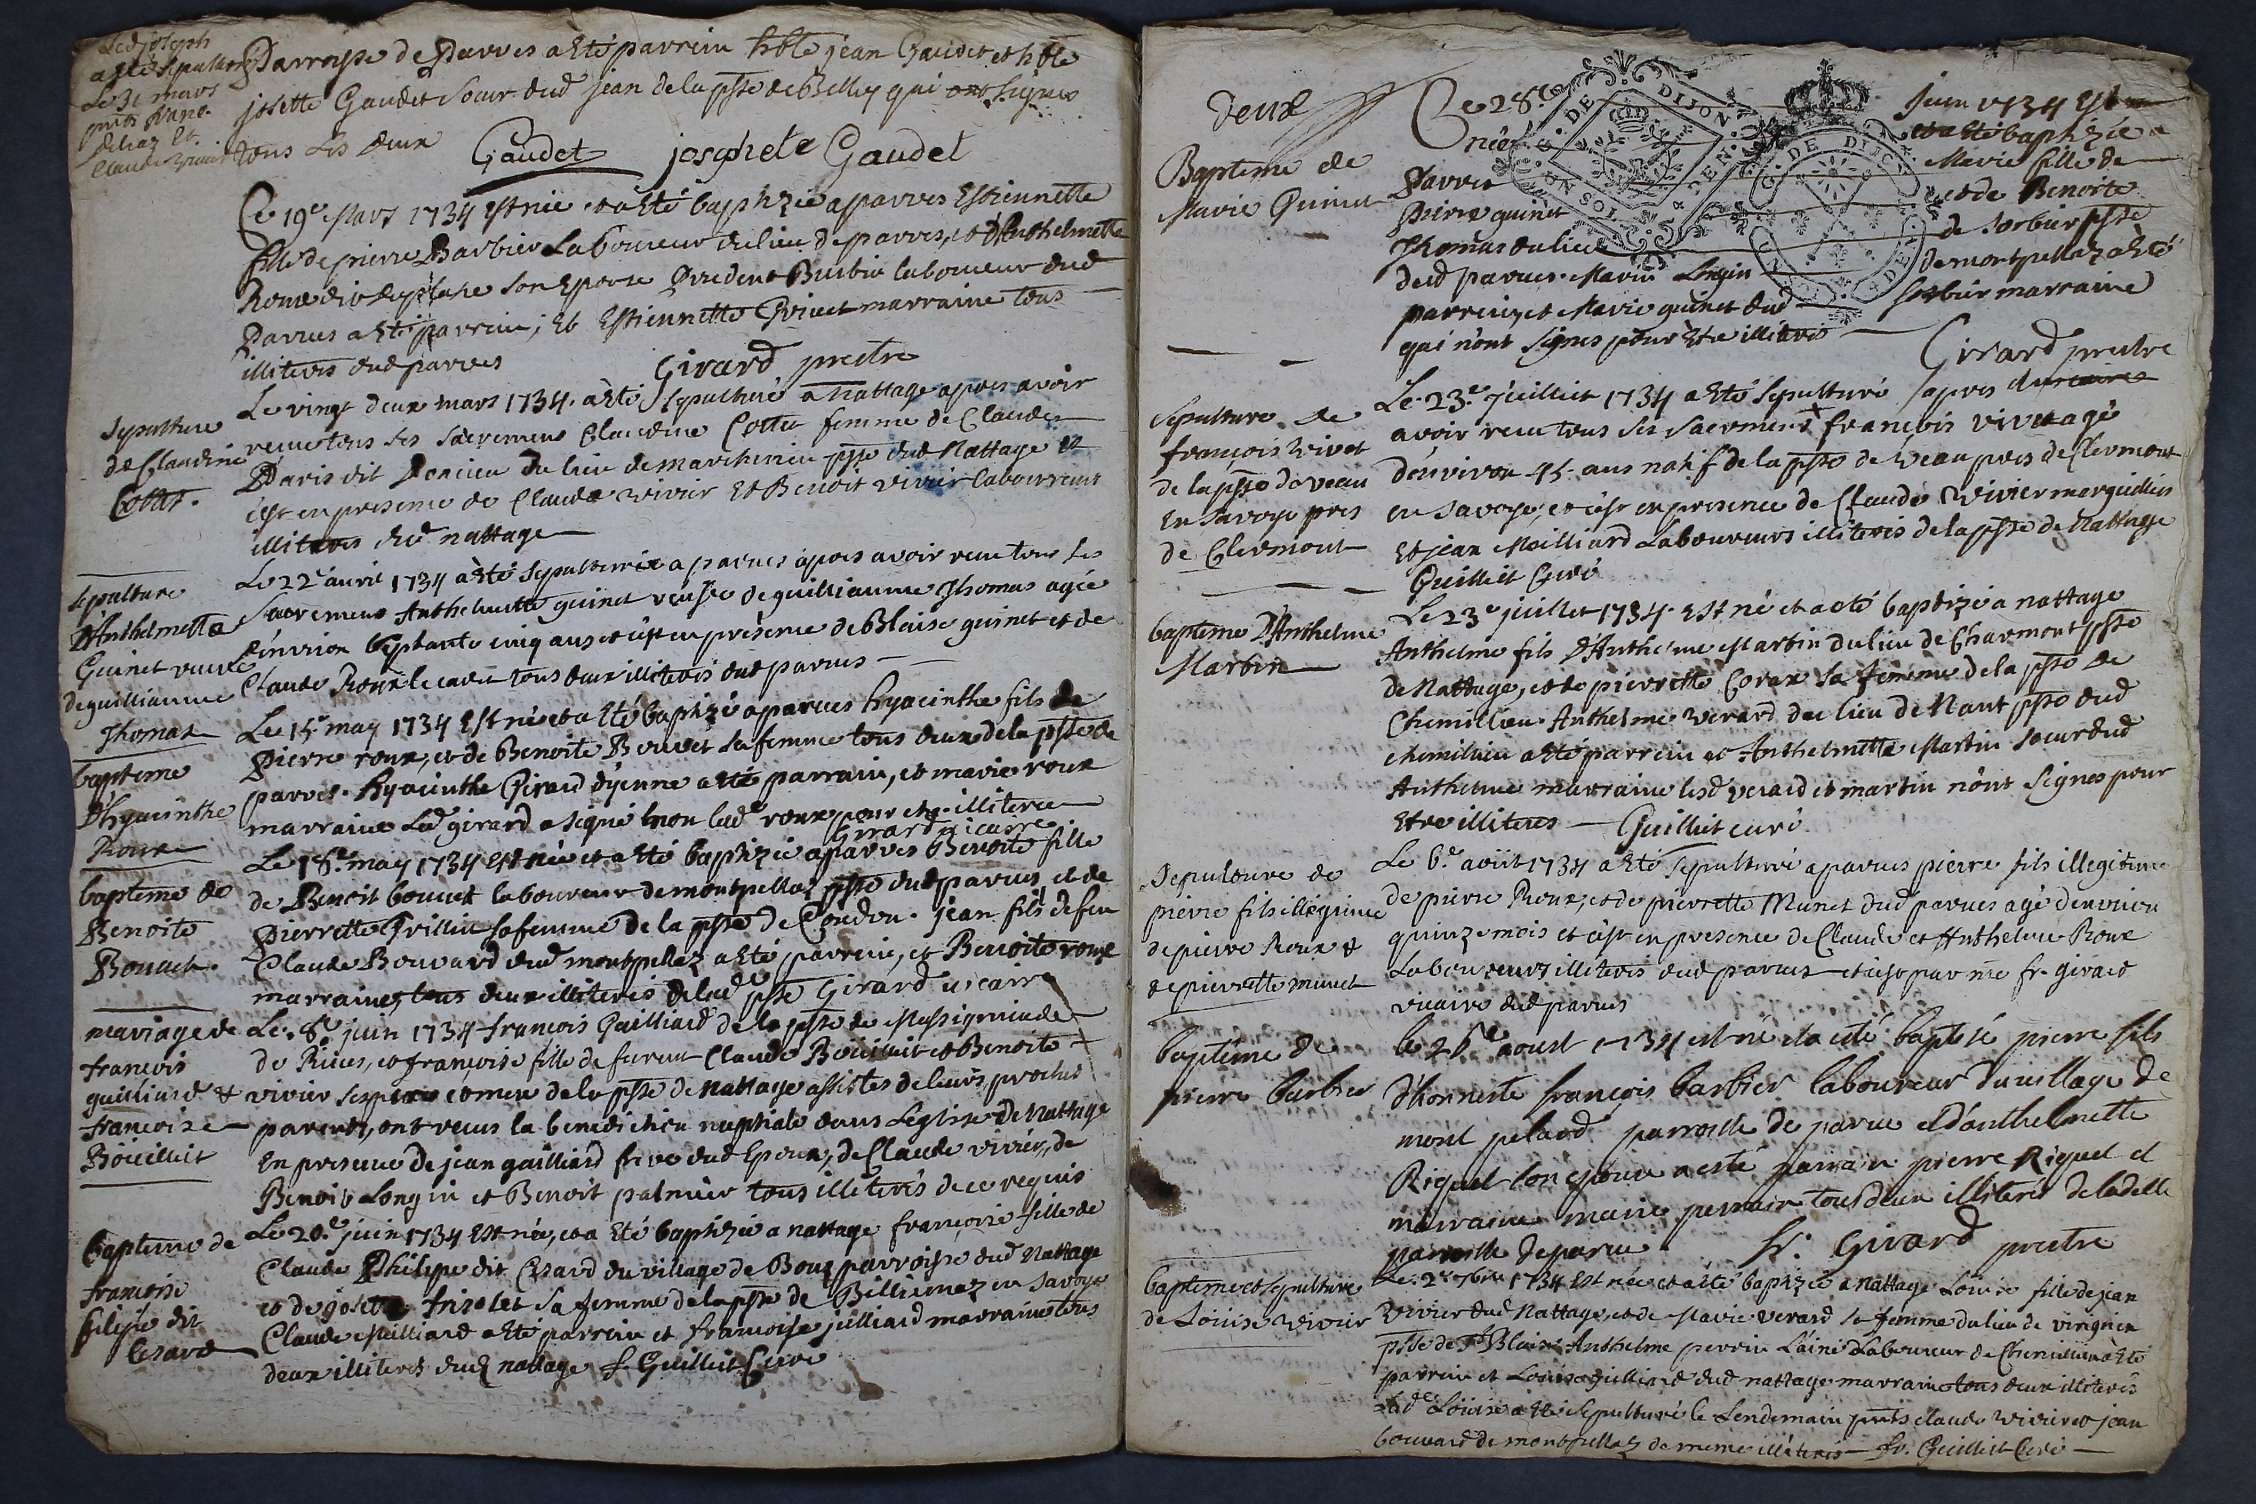 Led joseph
a esté sepulturé
Le 31 mars
Claude
Parroisse de Parves a esté parrein hble jean Gaudet et hble
josette Gaudet soeur dud jean de la psse de Belley qui ont signes
tous les deux
Gaudet josephete Gaudet
Ce 19e Mars 1734 est née et a esté baptizée a parves Estiennette
fille de pierre Barbier Laboureur du lieu de parves, et d'Anthelmette
Roux son Epouse Burbin laboureur dud
Parves a esté parrein, Et Estiennette Guinet marraine tous
illiteris dud parves
Girard prestre
Sepulture
de Claudine
Cottet.
Le vingt deux mars 1734. a esté sepulturé a Nattage apres avoir
receu tous ses sacremens Claudine Cottet femme de Claude
Paris dit du lieu de psse dud Nattage et
c'est en presence de Claude vivier Et Benoit vivier laboureurs
illiteris dud nattage
Sepulture
d'Anthelmette
Guinet veuve
de guilliaume
Thomas
Le 22e auril 1734 a esté sepulturée a parves apres avoir receu tous ses
sacremens Anthelmette guinet veufve de guilliaume Thomas agée
d'environ septante cinq ans et c'est en présence de Blaise guinet et de
Claude Roux le cadet tous deux illiteris dud parves
bapteme
d'hyacinthe
Roux
Le 15e may 1734 Est né et a esté baptizé a parves hyacinthe fils de
Pierre roux, et de Benoite Bouvet sa femme tous deux de la psse de
parves. hyacinthe Girard d'yenne a esté parrain, et marie roux
marraine Led girard a signé non lad roux pour etre illiteree
Girard vicaire
bapteme de
Benoite
Bouvet.
Le 18e may 1734 est née et a esté baptizée a parves Benoite fille
de Benoit bouvet laboureur de montpellaz psse dud parves, et de
Pierrette Grillin sa femme de la psse de Condon. jean fils de feu
Claude Bouvard dud montpellaz a esté parrein, et Benoite roux
marraine, tous deux illiteris de lad psse Girard vicaire
mariage de
francois
guilliard &
francoise
Boüilluit
Le 8e juin 1734 francois Guilliard de la psse de Massignieu de
de Rives, et francoise fille de Claude Boüilluit et Benoite
vivier ses pere et mere de la psse de Nattage assistes de leurs proches
parents, ont receus la benediction nuptiale dans L'eglise de Nattage
En presence de jean gailliard frere dud Epoux, de Claude vivier, de
Benoit Longin et Benoit palmier tous illiteris de ce requis
Bapteme de
francoise
filipe dit
Cesard
Le 20e juin 1734 Est née, et a esté baptizée a nattage francoise fille de
Claude Philipe dit Cesard du village de Bouz parroisse dud Nattage
et de josette frizolet sa femme de la psse de Billiemaz en Savoye
Claude Milliard a esté parrein et francoise juilliard marraine tous
deux illiteres dud nattage f. Guilliet Curé
deux
Bapteme de
Marie Guinet
Ce 28e juin 1734 Est
née et a esté baptizée a
Parves Marie fille de
Pierre guinet et de Benoite
Thomas du lieu de sorbier psse
dud parves. Marin Longin de montpellaz a esté
parrein, et Marie guinet dud sorbier marraine
qui n'ont signes pour Etre illiteris
Girard prestre
G. DE DIJON
G. DE DIJON
Sepulture de
francois vivet
de la psse de veau
En savoye pres
de Clermont
Le 23e Juilliet 1734 a esté sepulturé apres
avoir receu tous ses sacremens francois vivet agé
d'environ 45 ans natif de la psse de veau pres de Clermont
en savoye, et c'est en presence de Claude Vivier marguillier
Et jean Milliard Laboureurs illiteris de la psse de Nattage
Guilliet Curé
bapteme d'Anthelme
Martin
Le 23e juillet 1734. est né et a eté baptizé a nattage
Anthelme fils d'Anthelme Martin du lieu de Charmont psse
de Nattage, et de pierrette Corax sa femme de la psse de
Chemillieu Anthelme verard du lieu de Nant psse dud
chemillieu a esté parrein et Anthelmette Martin soeur dud
Anthelme marraine lesd verard et martin n'ont signes pour
Etre illiteres Guilliet curé
Sepulture de
pierre fils illegitime
de pierre Roux &
de pierrette munet
Le 6e aoüt 1734 a esté sepulturé a parves pierre fils illegitime
de pierre Roux, et de pierrette Munet dud parves agé d'environ
quinze mois et c'est en presence de Claude et Anthelme Roux
Laboureurs illiteris dud parves et c'est par me fr. girard
vicaire dud parves
baptéme de
pierre barbier
le 26e aoust 1734 est né et a eté baptisé pierre fils
d'honneste francois barbier laboureur du village de
mont pelard parroisse de parve et d'anthelmette
Riquet son epouse a esté parrain pierre Riquet et
marraine marie pernier tous deux illiteris de ladite
parroisse de parve
fr. Girard prestre
Bapteme et sepulture
de Loüise vivier
Le 2e 7bre 1734 est née et a esté baptizée a nattage Loüise fille de jean
Vivier dud Nattage, et de Marie verard sa femme du lieu de virignin
psse de St Blaise Anthelme perrin L'ainé Laboureur de Chemillieu a esté
parrein et Loüise guilliard dud nattage marraine tous deux illiteris
Lad Loüise a esté sepulturée le Lendemain pnts claude vivier et jean
bouvard de montpellaz de meme illiteris fr. Guilliet Curé